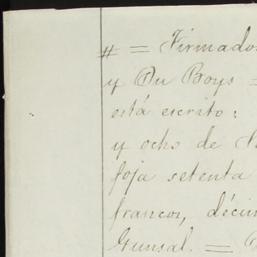 # = Firmado
y Du Boys =
está escrito:
y ocho de
foja setenta
francos, décim
Gunsal. =